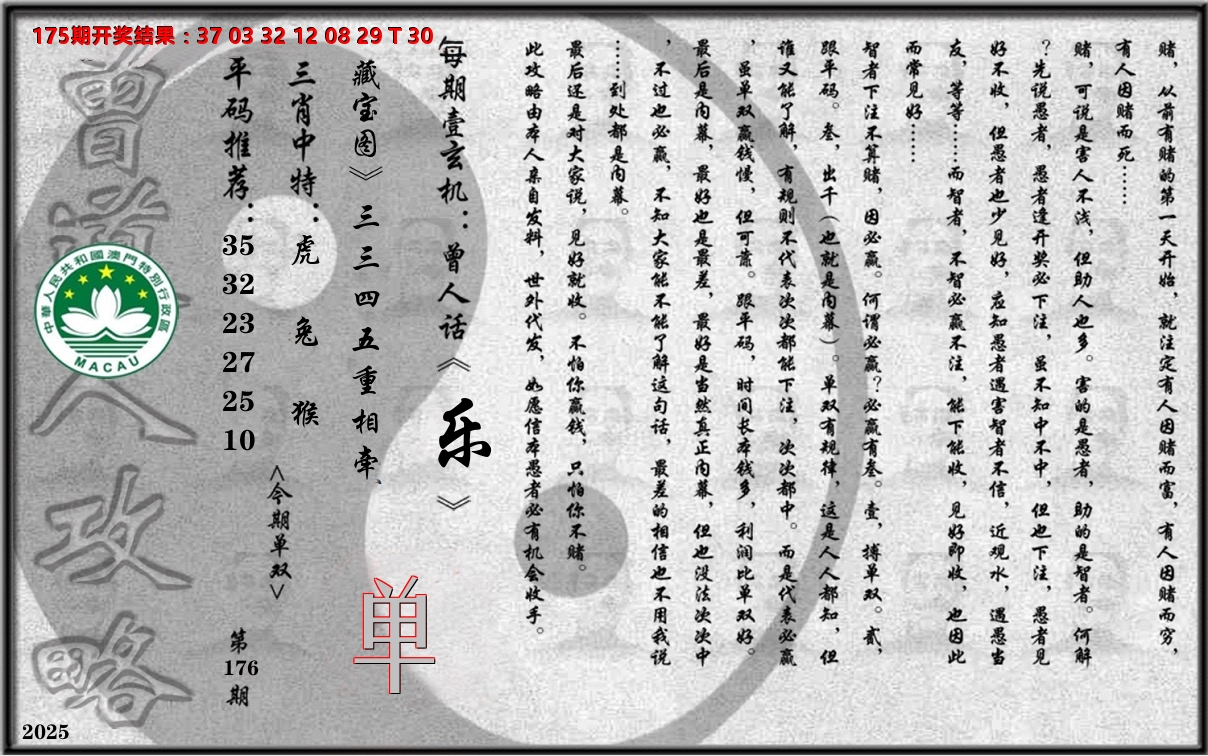 175期开奖结果：37 03 32 12 08 29 T 30
赌，从前有赌的第一天开始，就注定有人因赌而富，有人因赌而穷，
有人因赌而死……
赌，可说是害人不浅，但助人也多。害的是愚者，助的是智者。何解
？先说愚者，愚者逢开奖必下注，虽不知中不中，但也下注，愚者见
好不收，但愚者也少见好，应知愚者遇害智者不信，近观水，遇愚当
友，等等……而智者，不智必赢不注，能下能收，见好即收，也因此
而常见好……
智者下注不算赌，因必赢。何谓必赢？必赢有叁。壹，搏单双。贰，
跟平码。叁，出千（也就是内幕）。单双有规律，这是人人都知，但
谁又能了解，有规则不代表次次都能下注，次次都中。而是代表必赢
，虽单双赢钱慢，但可靠。跟平码，时间长本钱多，利润比单双好。
最后是内幕，最好也是最差，最好是当然真正内幕，但也没法次次中
，不过也必赢，不知大家能不能了解这句话，最差的相信也不用我说
……到处都是内幕。
最后还是对大家说，见好就收。不怕你赢钱，只怕你不赌。
此攻略由本人亲自发料，世外代发，如愿信本愚者必有机会收手。
每期壹玄机：曾人话《乐》
藏宝图》三三四五重相牵、
单
三肖中特：虎 兔 猴
<今期单双>
平码推荐：35 32 23 27 25 10
第176期
曾道人攻略
中華人民共和國澳門特別行政區
MACAU
2025